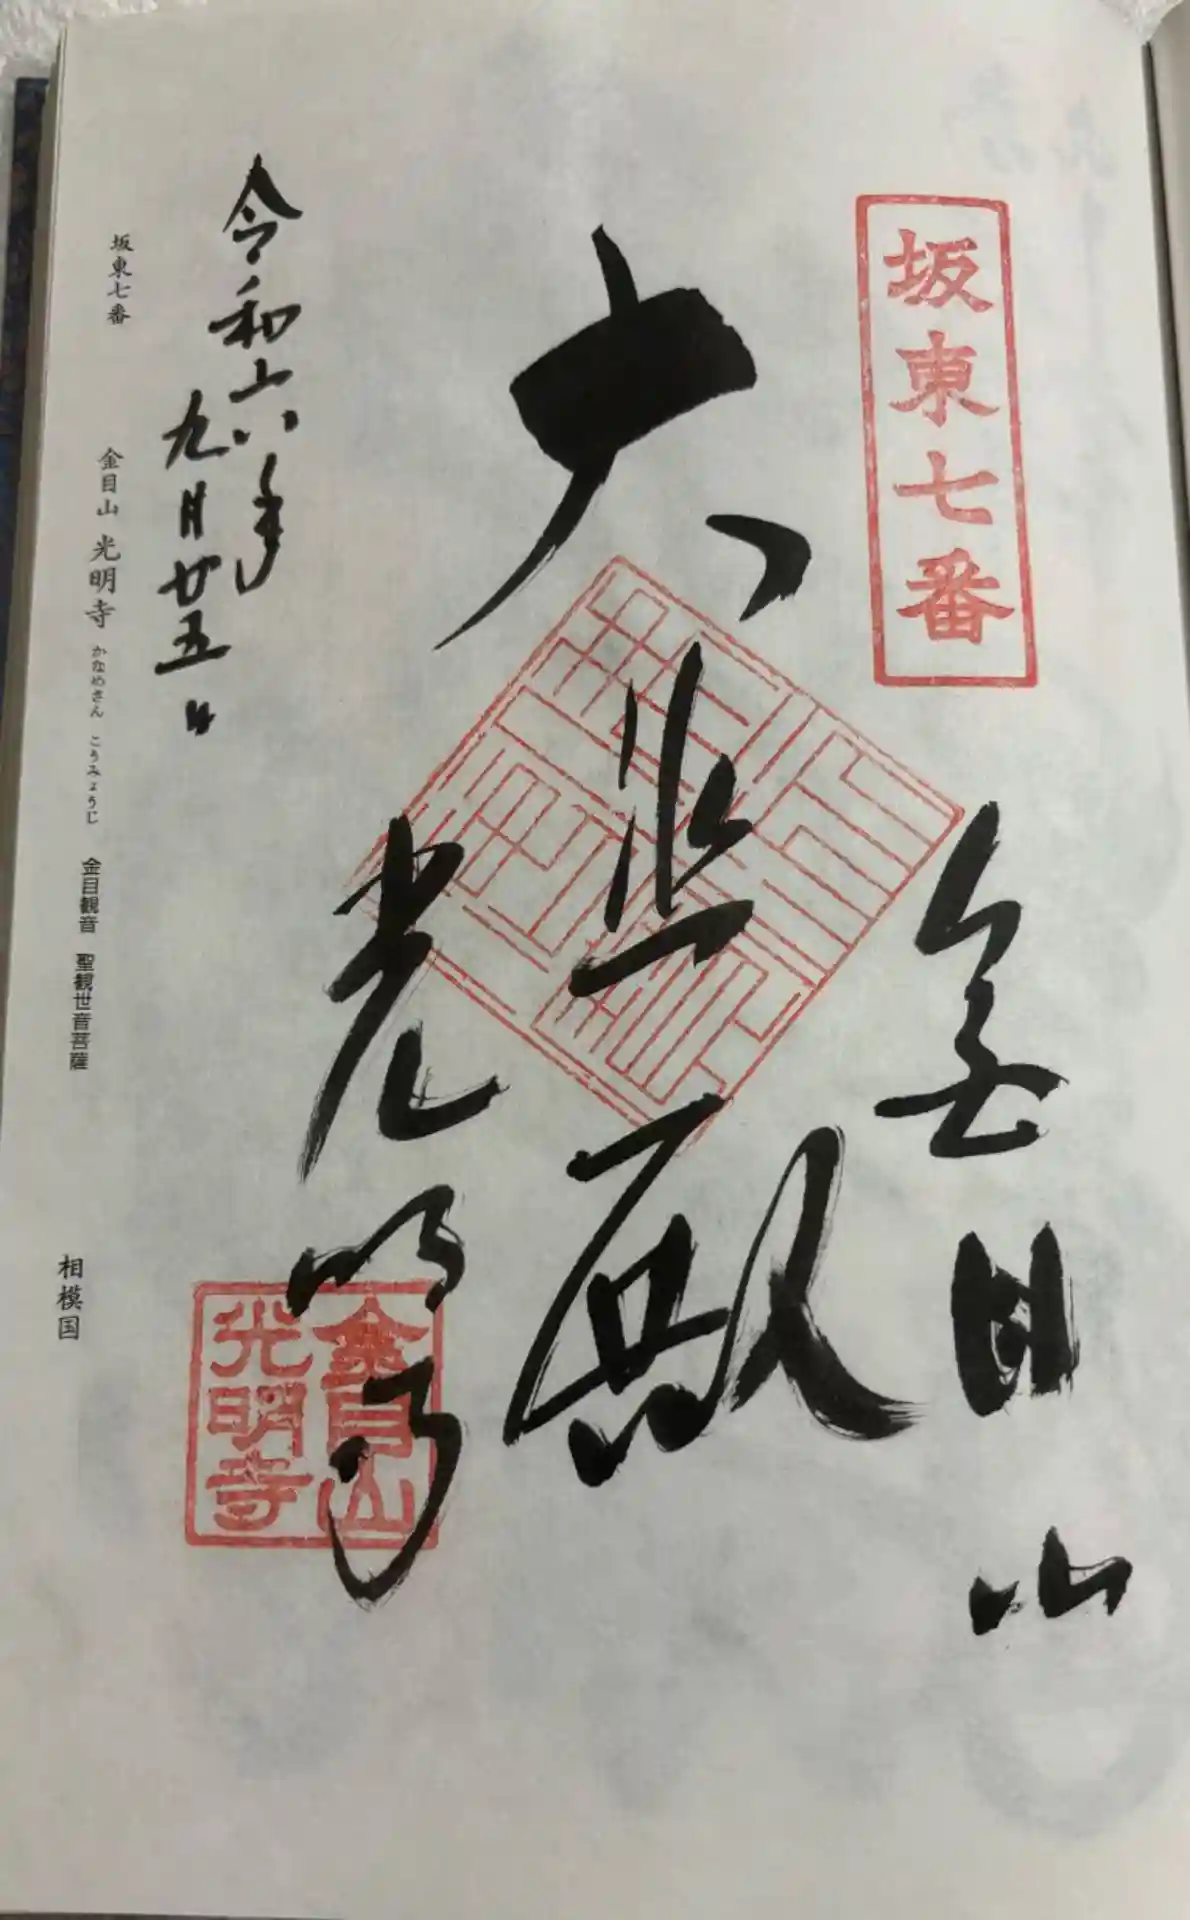 坂東七番
金目山
大悲殿
光明寺
金目山
光明寺
令和六年
九月廿五日
坂東七番 金目山 光明寺 かなめさん こうみょうじ 金目観音 聖観世音菩薩 相模国